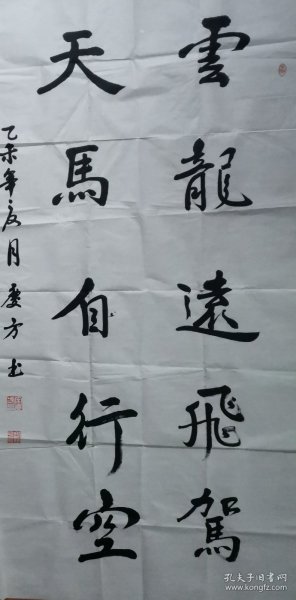 雲龍遠飛駕
天馬自行空
乙未年夏月慶方书
孔夫子旧书网
www.kongfz.com